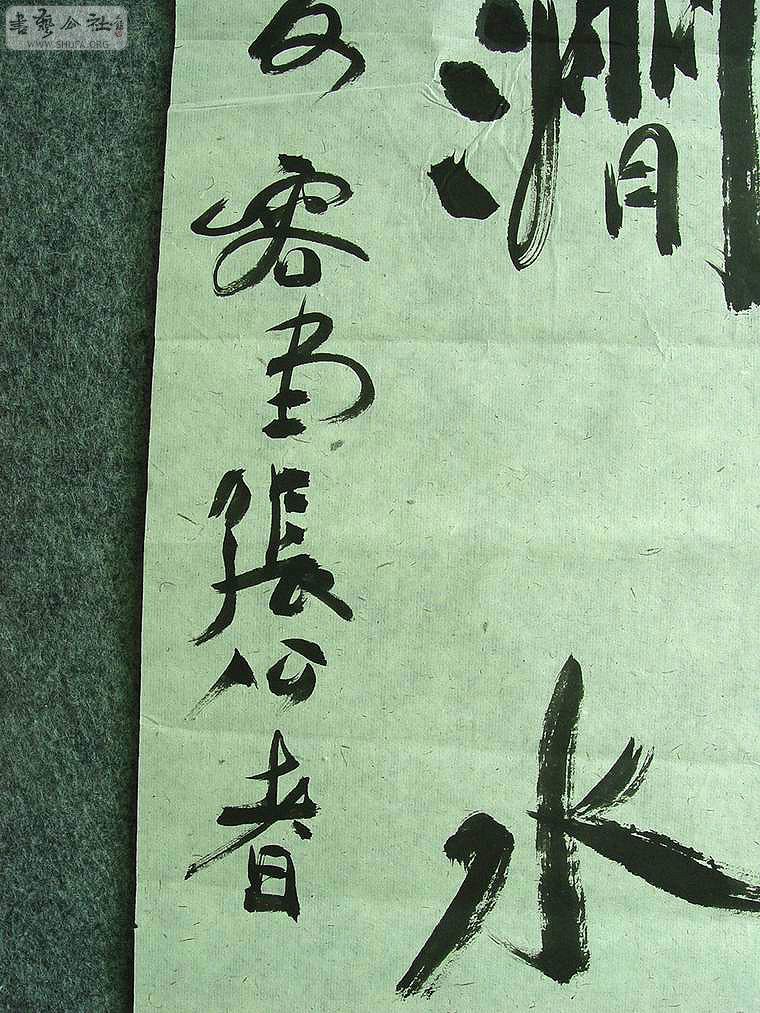 書藝公社
WWW.SHUFA.ORG
澗水
客畫張公者